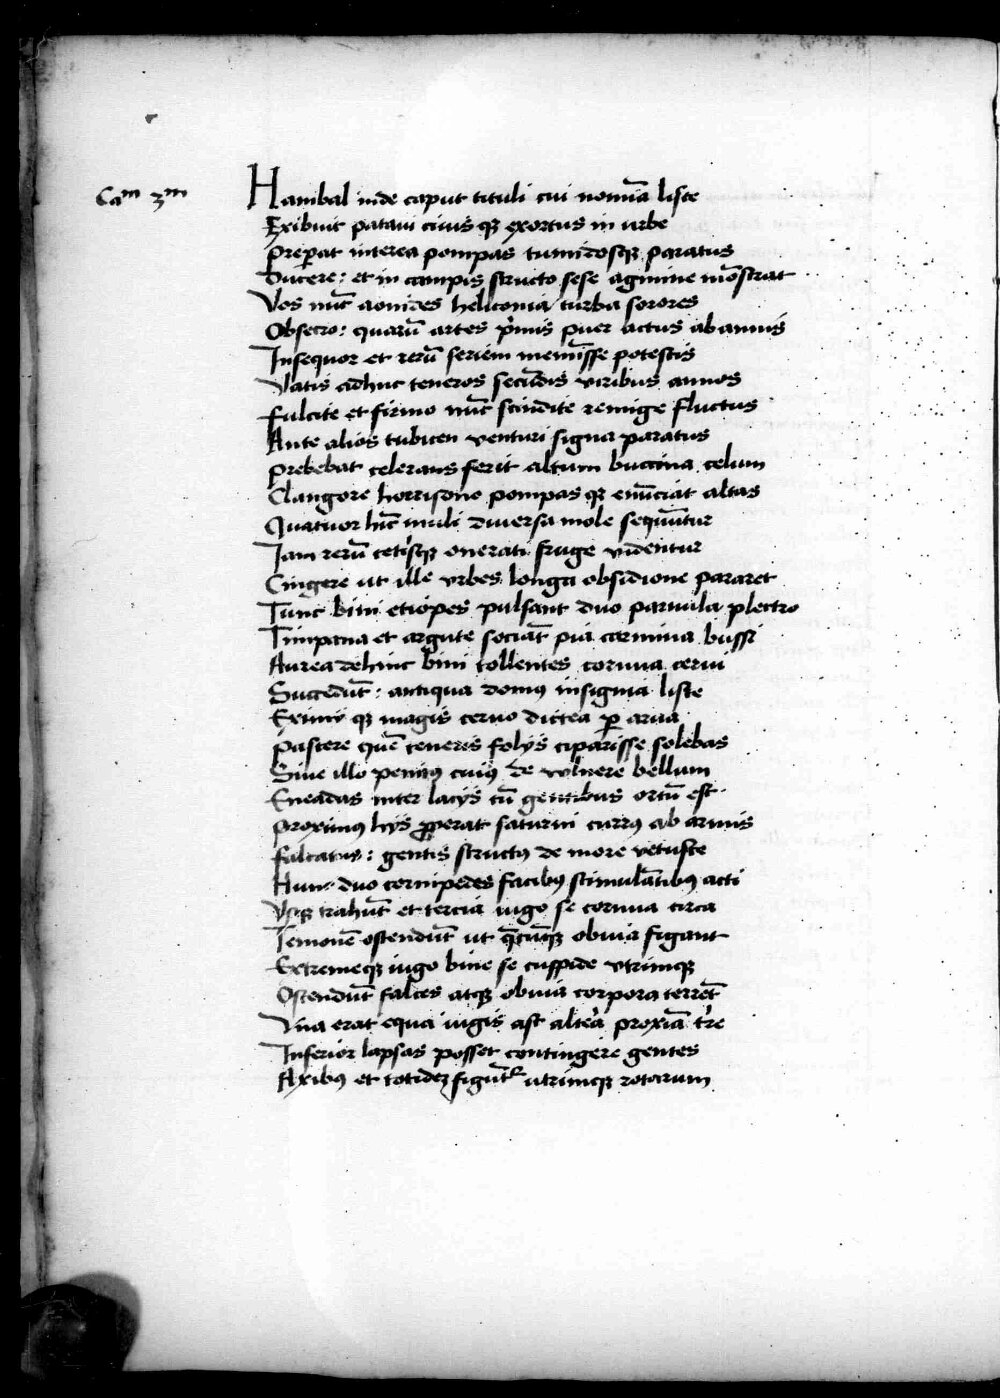 Caᵐ 3ᵐ
Hanibal inde caput tituli cui nomīa liste
Exibuit pataui ciuis qꝫ exortus in urbe
Prep̄at interea pompas tumidosqꝫ paratus
Ducere: et in campis structo sese agmine mōstrat
Vos nūc aonides heliconia turba sorores
Obsecro: quarū artes p̄mis puer actus ab annis
Insequor et rerū seriem meminīsse potestis
Vatis adhuc teneros secūdis viribus annos
Fulcite et firmo nūc scindite remige fluctus
Ante alios tubicen venturi signa paratus
Prebebat celerans ferit altum buccina celum
Clangore horrisono pompas qꝫ enūciat altas
Quatuor hīc muli diuersa mole sequūtur
Iam rerū cetisqꝫ onerati fruge videntur
Cingere ut ille vrbes longa obsidione pararet
Tunc bini etiopes pulsant duo paruula plectro
Timpana et argute sociāt pia carmina bussi
Aurea dehinc bini tollentes cornua cerui
Succedūt: antiqua domꝰ insignia liste
Eximij qꝫ magis ceruo dictea ꝑ arua
Pascere quē teneris folijs ciparisse solebas
Siue illo penitꝰ cuiꝰ de vulnere bellum
Eneadas inter lacijs cū gentibus ortū est
Proximꝰ hijs ꝓperat saturni currꝰ ab armis
Falcatus: gentis structꝰ de more vetuste
Hunc duo cornipedes facibꝰ stimulātibꝰ acti
Vsqꝫ trahūt et tercia iugo se cornua circa
Temonē ostendūt ut q̄cūqꝫ obuia figant
Extremeqꝫ iugo bine se cuspide vtrimqꝫ
Ostendūt falces atqꝫ obuia corpora terrēt
Vna erat equa iugis ast alteā proxiā tr̄e
Inferior lapsas posset contingere gentes
Axibꝰ et totideꝫ figūt͛ utrimqꝫ rotarum